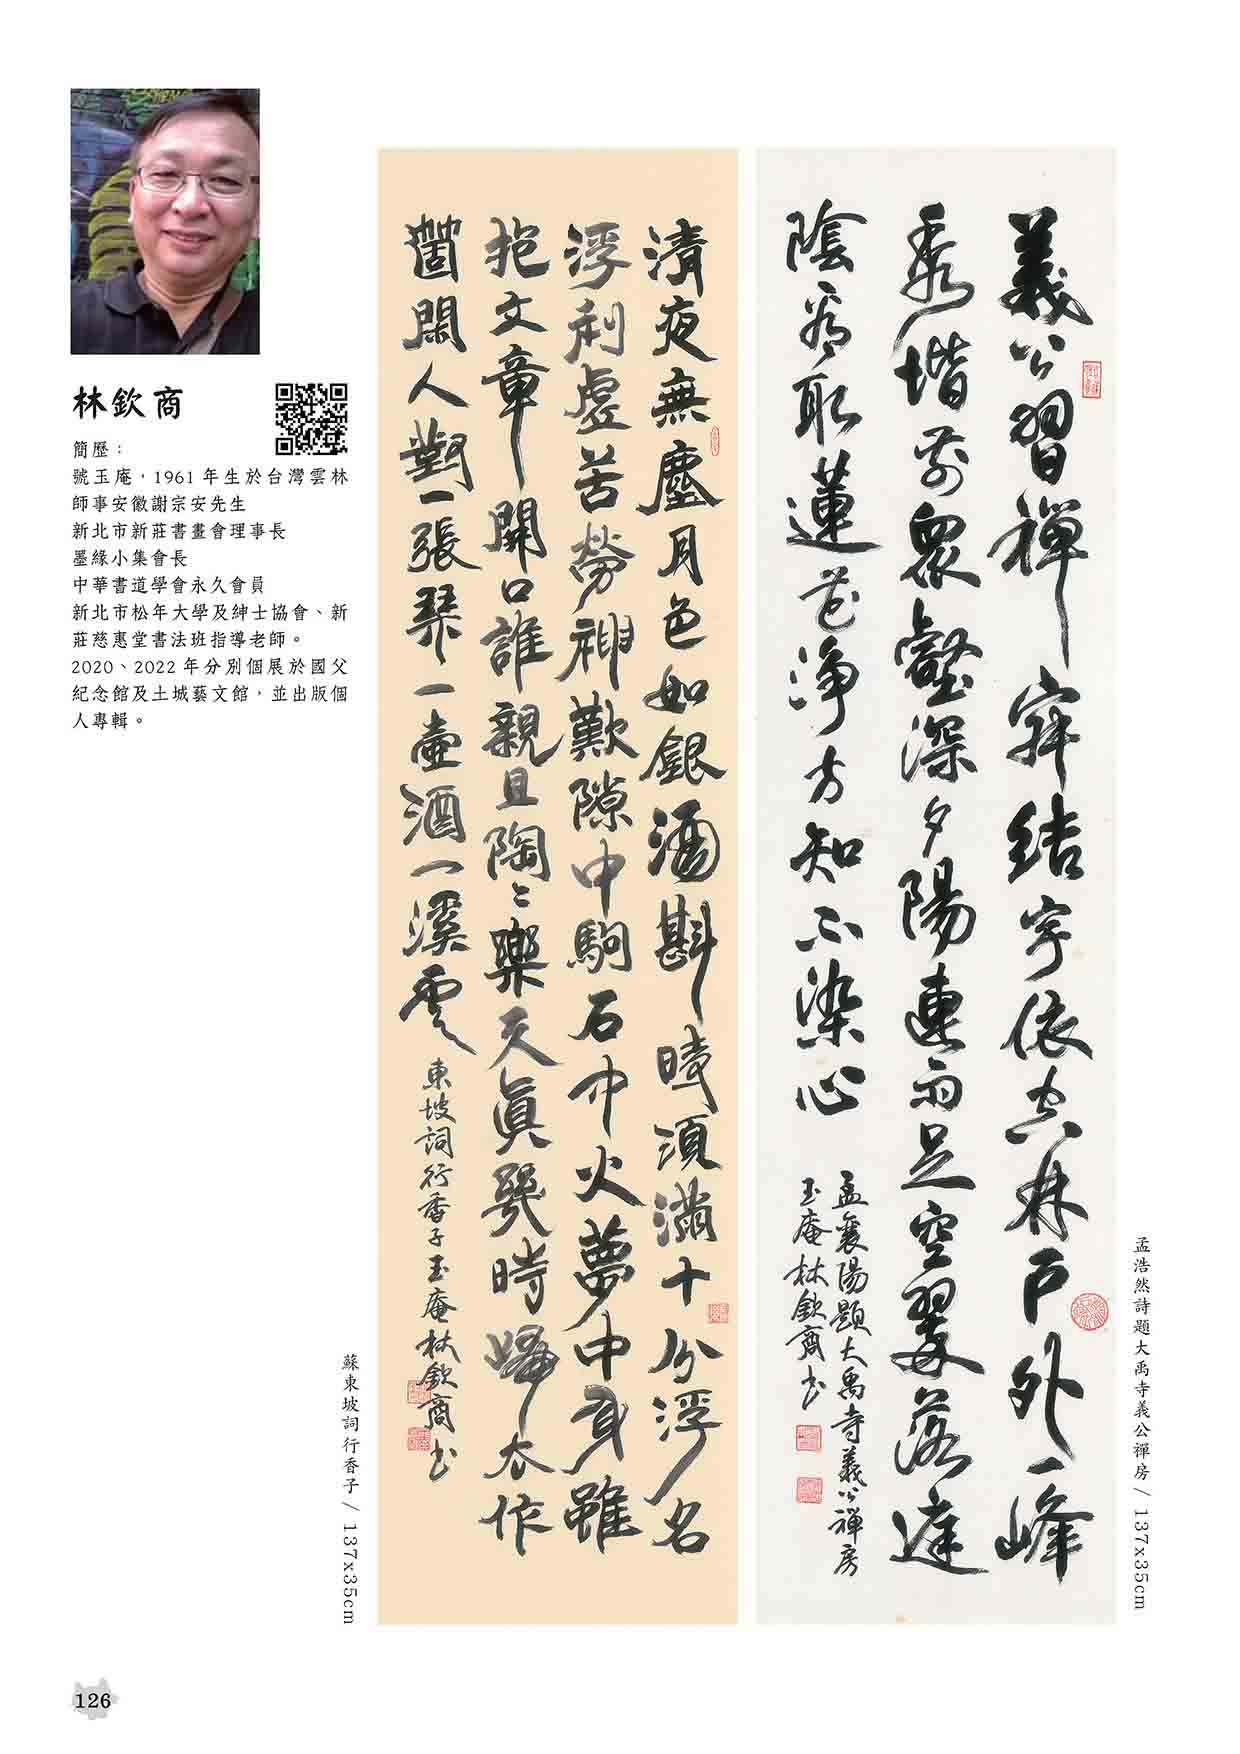 林欽商
簡歷：
號玉庵，1961年生於台灣雲林
師事安徽謝宗安先生
新北市新莊書畫會理事長
墨緣小集會長
中華書道學會永久會員
新北市松年大學及紳士協會、新
莊慈惠堂書法班指導老師。
2020、2022年分別個展於國父
紀念館及土城藝文館，並出版個
人專輯。
義公習禪寂結宇依空林戶外一峰
秀階前眾壑深夕陽連雨足空翠落庭
陰看取蓮花淨方知不染心
孟襄陽題大禹寺義公禪房
玉庵林欽商书
孟浩然詩題大禹寺義公禪房 / 137x35cm
清夜無塵月色如銀酒斟時須滿十分浮名
浮利虛苦勞神歎隙中駒石中火夢中身雖
抱文章開口誰親且陶〻樂天眞幾時歸去作
箇閑人對一張琴一壺酒一溪雲
東坡詞行香子玉庵林欽商书
蘇東坡詞行香子 / 137x35cm
126